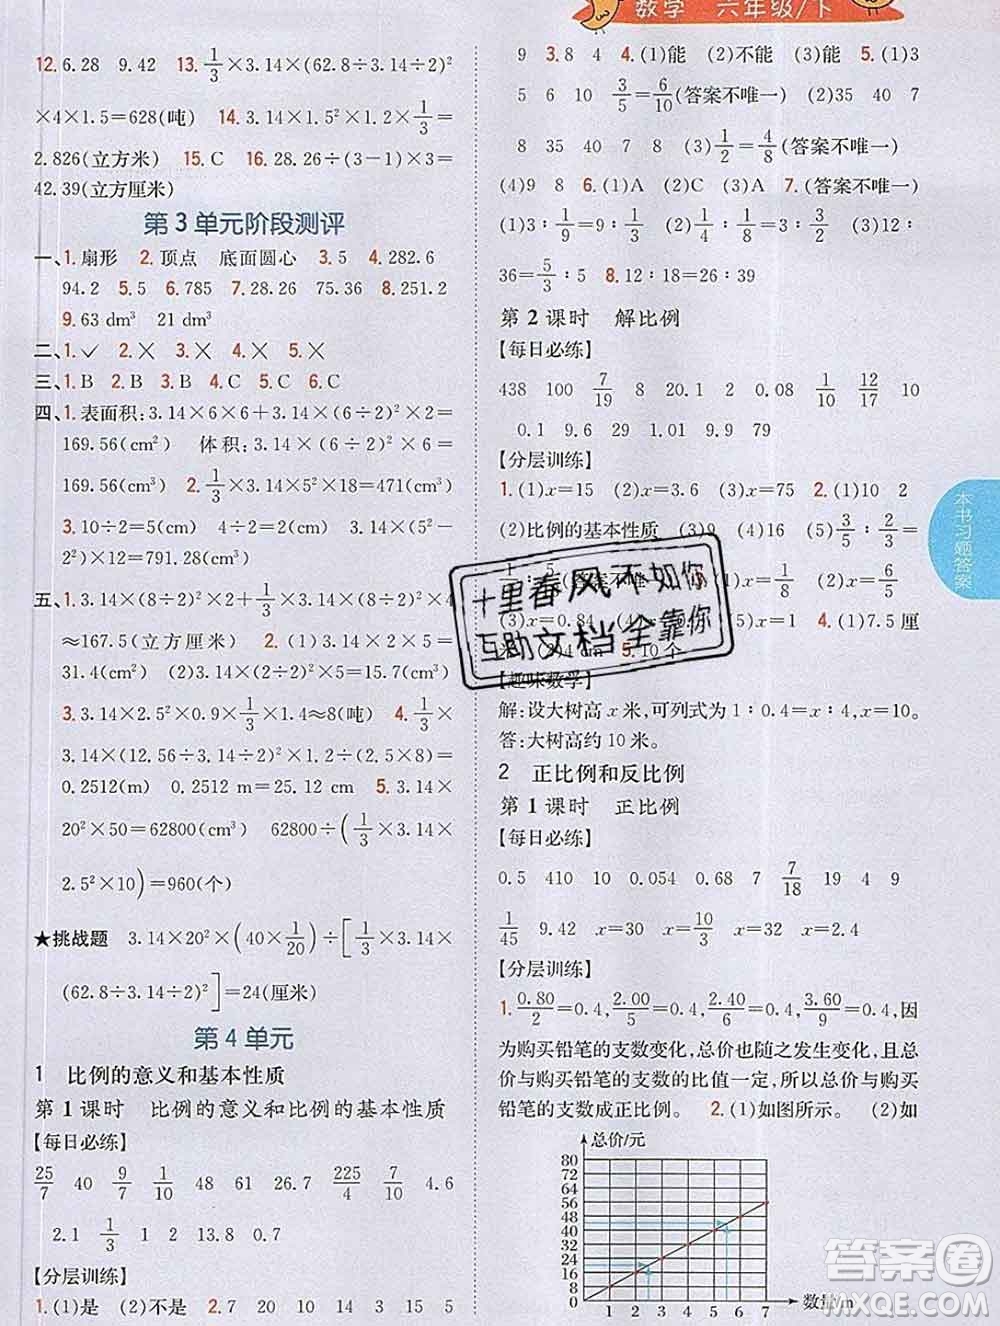 数学 六年级/下
12. 6.28 9.42 13. 1/3×3.14×(62.8÷3.14÷2)²
×4×1.5=628(吨) 14. 3.14×1.5²×1.2×1/3=
2.826(立方米) 15. C 16. 28.26÷(3-1)×3=
42.39(立方厘米)
第3单元阶段测评
一、1. 扇形 2. 顶点 底面圆心 3. 5 4. 282.6
94.2 5. 5 6. 785 7. 28.26 37.68 8. 251.2
9. 63 dm³ 21 dm³
二、1. ✓ 2. × 3. × 4. × 5. ×
三、1. B 2. B 3. B 4. B 5. C
四、1. 表面积:3.14×6×6+3.14×(6÷2)²×2=
169.56(cm²) 体积:3.14×(6÷2)²×6=
169.56(cm³) 2. 1/3×3.14×5²×18=471(cm³)
3. 10÷2=5(cm) 4÷2=2(cm) 3.14×(5²-
2²)×12=791.28(cm³)
五、1. 3.14×(8÷2)²×2+1/3×3.14×(8÷2)²×4
≈167.5(立方厘米) 2. (1)3.14×2×5=
31.4(平方米) (2)3.14×(2÷2)²×5=15.7(立方米)
3. 3.14×2.5²×0.9×1/3×1.4≈8(吨) 4. 1/3×
3.14×(12.56÷3.14÷2)²×1.2÷(2×10)=
0.2512(m) 0.2512 m=25.12 cm 5. 3.14×
20²×50=62800(cm³) 62800÷(1/3×3.14×
2.5²×10)=960(个)
★挑战题 3.14×20²×(40×1/20)÷[1/3×3.14×
(62.8÷3.14÷2)²]=24(厘米)
第4单元
1 比例的意义和基本性质
第1课时 比例的意义和比例的基本性质
【每日必练】
25/7 40 9/7 1/10 48 2 225/4 40/7 4.6
2.1 1/3 3 0.12 0.7
【分层训练】
1. (1)是 (2)不是 2. 7 20 10 14 3 5
9 3. 8 4 4. (1)能 (2)不能 5. (1)3
5 6 10 3/5=6/10(答案不唯一) (2)35 40 7
8 35 40 7 8 (3)1/2=4/8(答案不唯一)
(4)9 8 6. (1)A (2)A 7. (答案不唯一)
(1)3:1/3=9:1 (2)3:1/9=12:4/9 (3)12:
36=5/3:5 8. 12:18=26:39
第2课时 解比例
【每日必练】
438 100 7/19 8 20.1 2 0.08 1/10 12/17 10
0.1 9.6 70 20.9 79
【分层训练】
1. (1)x=15 (2)x=3.6 (3)x=75 2. (1)10 2
(2)比例的基本性质 (3)9 (4)16 (5)3/5:2/3=
(3)x=0.84 x=1 4. (1)7.5厘
米 (2)4 cm 5. 10个
【趣味数学】
解:设大树高x米,可列式为1:0.4=x:4,x=10。
答:大树高约10米。
2 正比例和反比例
第1课时 正比例
【每日必练】
0.5 410 10 0.054 0.68 7 7/18 19 4
1/45 9.42 x=40 x=10/3 x=2 x=2.4
【分层训练】
1. 0.80/2=0.4,2.00/5=0.4,2.40/6=0.4,3.60/9=0.4,因
为购买铅笔的支数变化,总价也随之发生变化,且总
价与购买铅笔的支数的比值一定,所以总价与购买
铅笔的支数成正比例。 2. (1)如图所示。 (2)如
总价/元
80
72
64
56
48
40
32
24
16
8
0
1 2 3 4 5 6 7 数量/m
本书习题答案
十里春风不如你
互助文档全靠你
答案圈
MXQE.COM